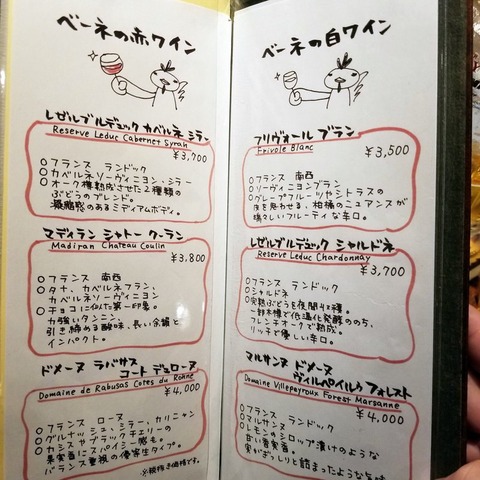 ベーネの赤ワイン
レゼルブルデュック カベルネ シラー
Reserve Leduc Cabernet Syrah
¥3,700
○フランス ランドック
○カベルネソーヴィニヨン・シラー
○オーク樽熟成させた2種類の
ぶどうのブレンド。
凝縮感のあるミディアムボディ。
マディラン シャトー クーラン
Madiran Chateau Coulin
¥3,800
○フランス 南西
○タナ、カベルネフラン、
カベルネソーヴィニヨン
○チョコに似た第一印象。
力強いタンニン、
引き締める酸味、長い余韻と
インパクト。
ドメーヌ ラバサス
コート デュ ローヌ
Domaine de Rabusas Cotes du Rohne
¥4,000
○フランス ローヌ
○グルナッシュ・シラー、カリニャン
○カシスやブラックチェリーの
果実香にスパイシー感も。
バランス重視の優等生タイプ。
※税抜き価格です。
ベーネの白ワイン
フリヴォール ブラン
Frivole Blanc
¥3,500
○フランス 南西
○ソーヴィニヨンブラン
○グレープフルーツやシトラスの
皮を思わせる、柑橘のニュアンスが
瑞々しいフルーティな辛口。
レゼルブルデュック シャルドネ
Reserve Leduc Chardonnay
¥3,700
○フランス ランドック
○シャルドネ
○完熟ぶどうを夜間収穫。
一部樽で低温化発酵ののち、
フレンチオークで熟成。
リッチで優しい辛口。
マルサンヌ ドメーヌ
ヴィルペイルゥ フォレスト
Domaine Villepeyroux Forest Marsanne
¥4,000
○フランス ランドック
○マルサンヌ
○レモンのシロップ漬けのような
甘い蜜実香。
実がぎっしりと詰まったような